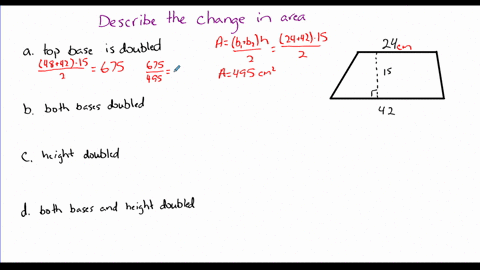 Describe the change in area
a. top base is doubled
(48+42)·15 / 2 = 675
675 / 495 =
A = (b₁+b₂)h / 2 = (24+42)·15 / 2
A = 495 cm²
24cm
15
42
b. both bases doubled
c. height doubled
d. both bases and height doubled